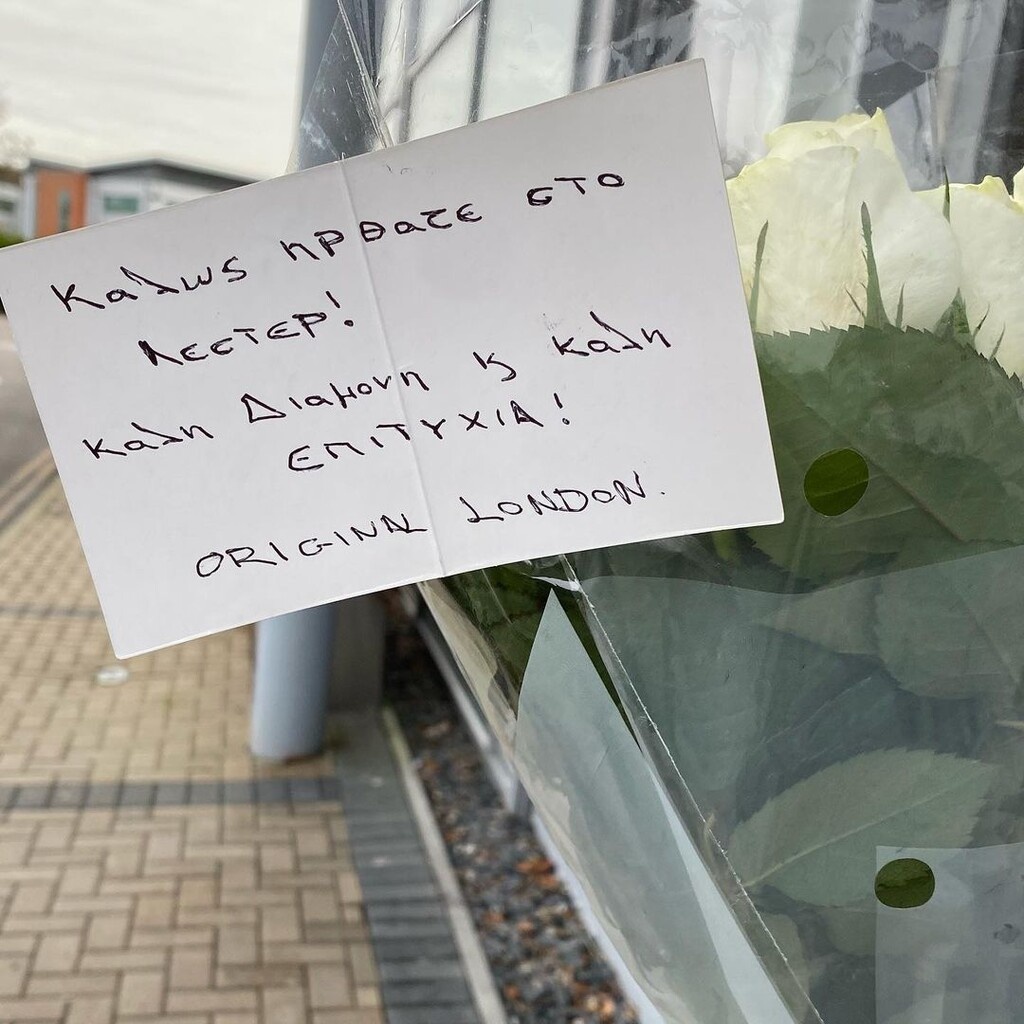 Καλως ηρθατε στο
Λεστερ!
Καλη Διαμονη ϗ καλη
Επιτυχια!
ORIGINAL LONDON.